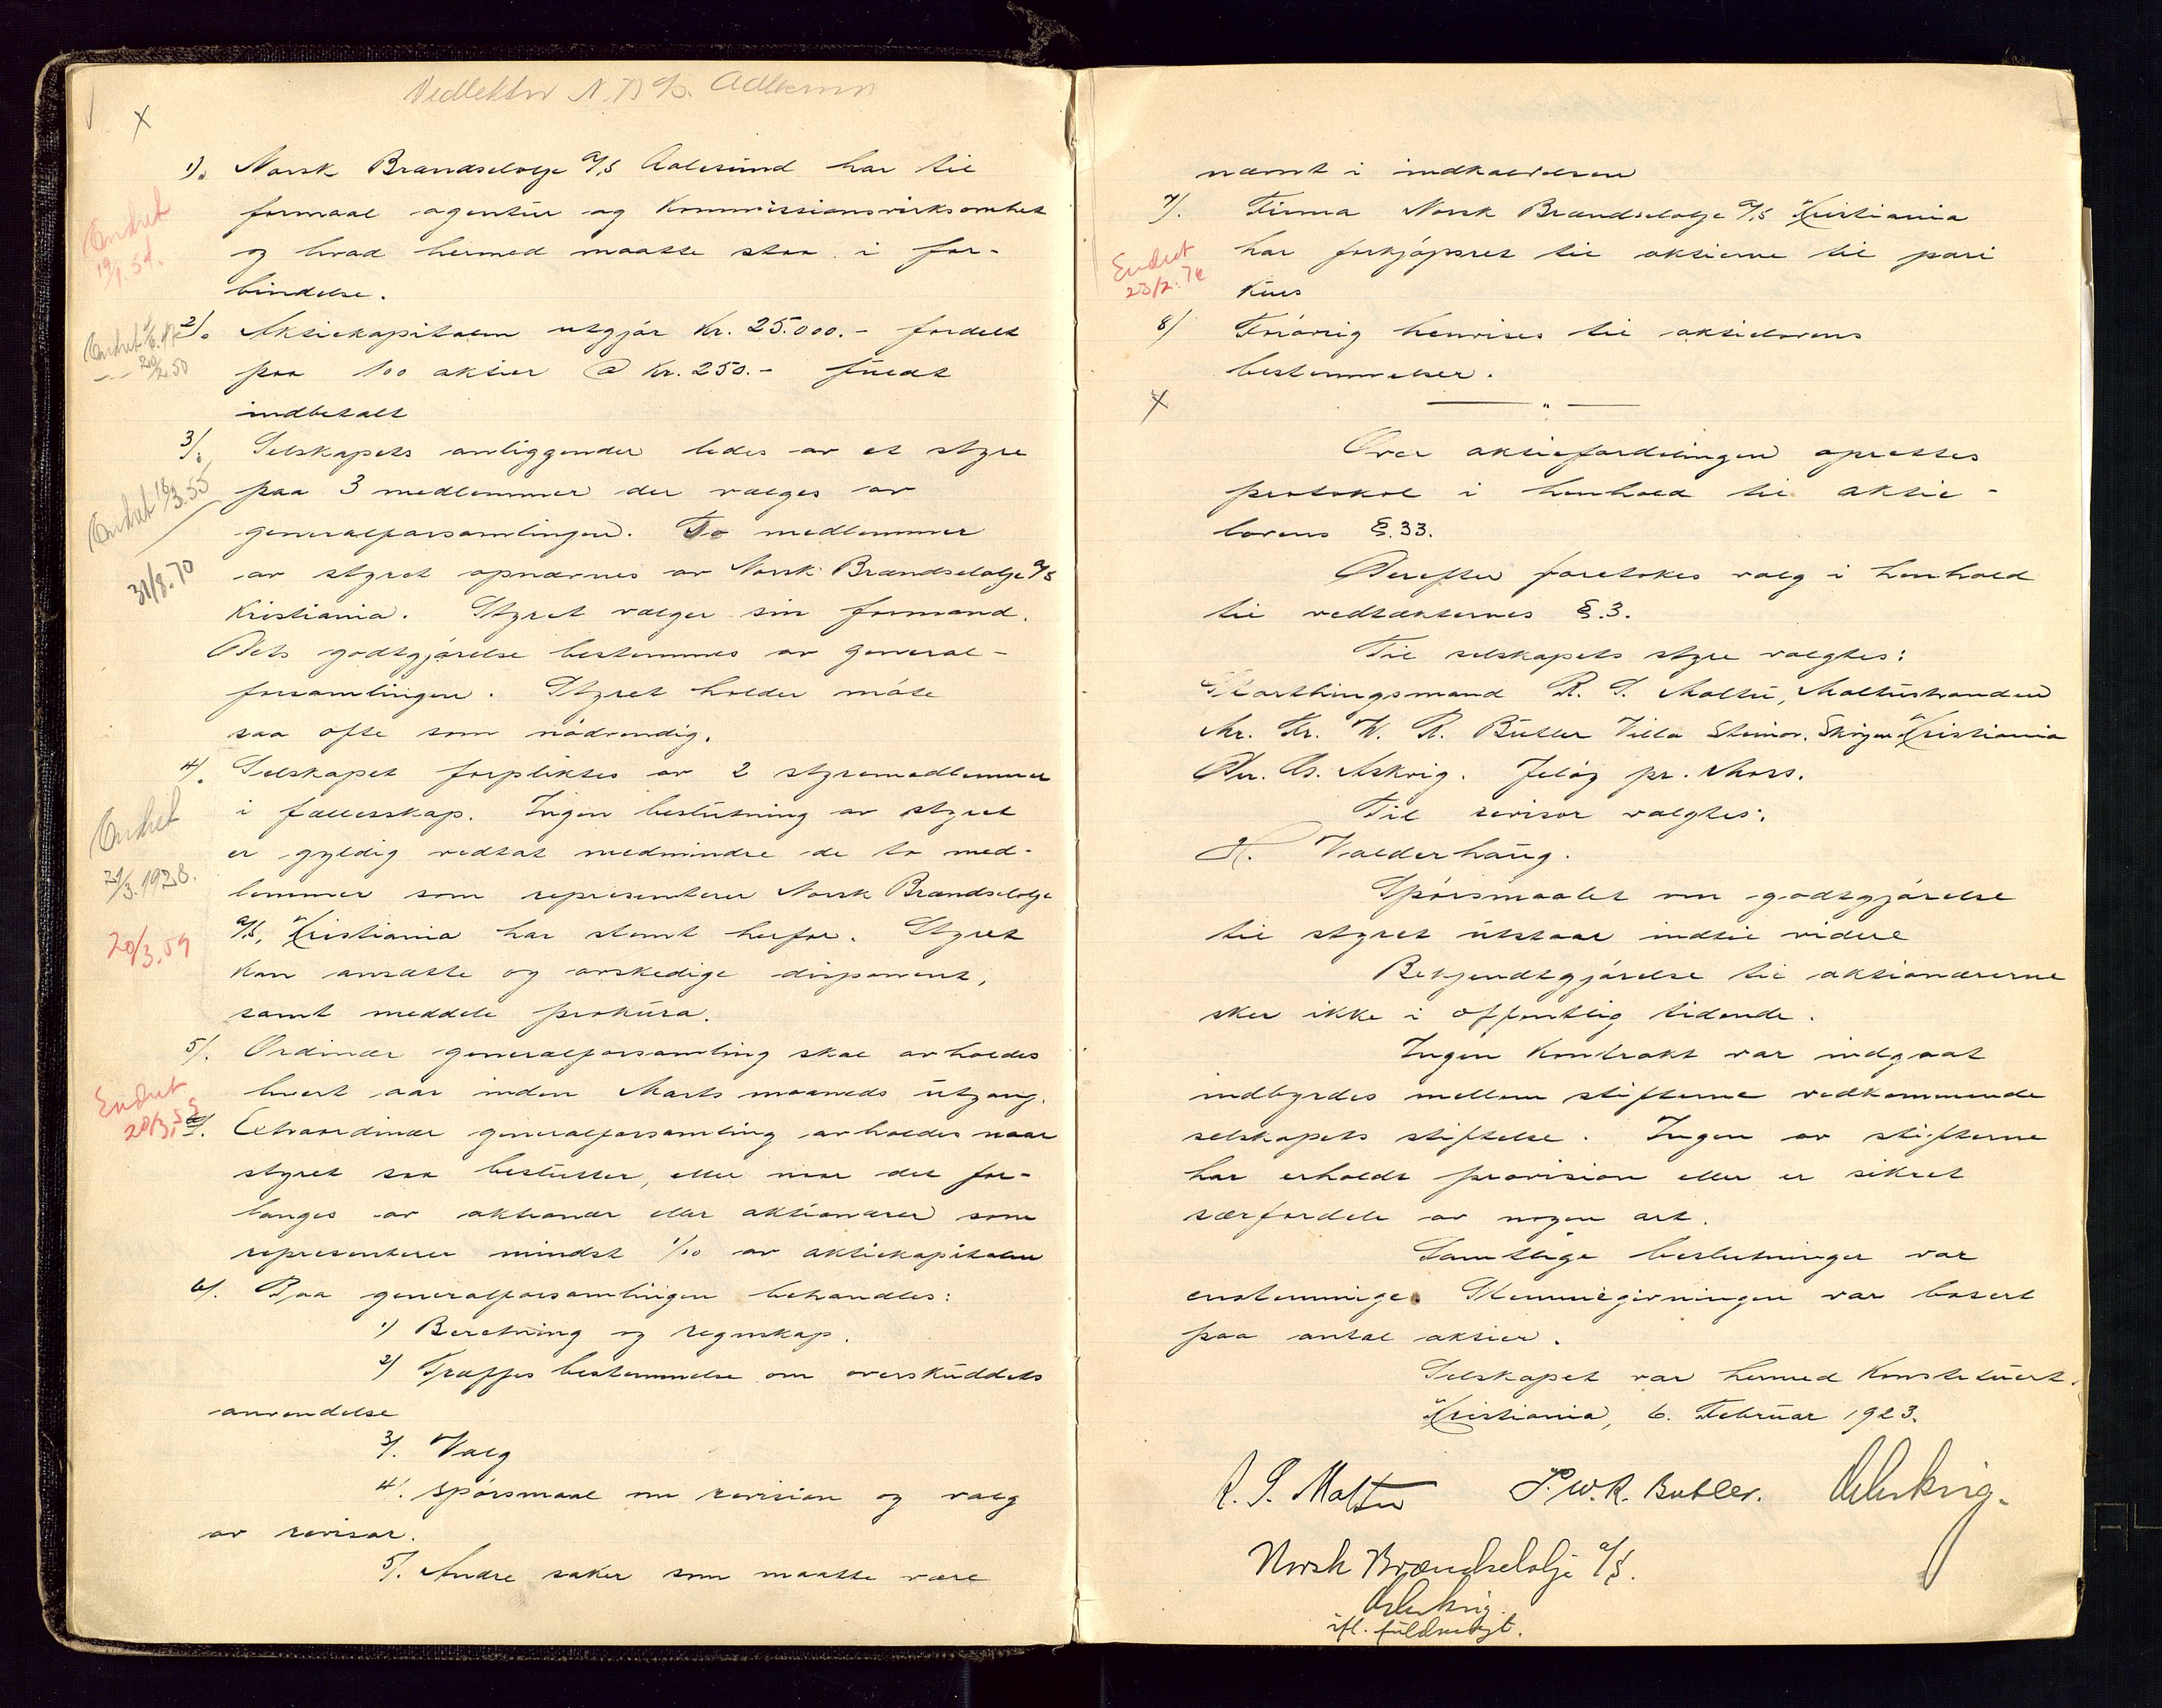 1). Norsk Brændselolje A/S Aalesund har til
formaal agentur og Kommissionsvirksomhet
og hvad hermed maatte staa i for-
bindelse.
Endret
19/1.54.
2). Aktiekapitalen utgjør Kr. 25.000.- fordelt
paa 100 aktier @ Kr. 250.- fuldt
indbetalt
20/2.50
3/. Selskapets anliggender ledes av et styre
paa 3 medlemmer der vælges av
generalforsamlingen. To medlemmer
av styret opnævnes av Norsk Brændselolje A/S
Kristiania. Styret vælger sin formand.
Dets godtgjørelse bestemmes av general-
forsamlingen. Styret holder møte
saa ofte som nødvendig.
Endret 18/3.55
31/8.70
4/. Selskapet forpliktes av 2 styremedlemmer
i fællesskap. Ingen beslutning av styret
er gyldig vedtat medmindre de to med-
lemmer som representerer Norsk Brændselolje
A/S, Kristiania har stemt herfor. Styret
kan ansætte og avskedige disponent,
samt meddele prokura.
Endret
21/3.1928.
20/3.59
5/. Ordinær generalforsamling skal avholdes
hvert aar inden Marts maaneds utgang.
Extraordinær generalforsamling avholdes naar
styret saa beslutter, eller naar det for-
langes av aktionær eller aktionærer som
representerer mindst 1/10 av aktiekapitalen
Endret
20/3.59
6/. Paa generalforsamlingen behandles:
1) Beretning og regnskap.
2) Træffes bestemmelse om overskuddets
anvendelse
3/. Valg
4/. Spørsmaal om revision og valg
av revisor.
5/. Andre saker som maatte være
nævnt i indkaldelsen
7/. Firma Norsk Brændselolje A/S Kristiania
har forkjøpsret til aktierne til pari
Kurs
Endret
8/ Forøvrig henvises til aktielovens
bestemmelser.
Over aktiefordelingen oprettes
protokol i henhold til aktie-
lovens §.33.
Derefter foretokes valg i henhold
til vedtækternes §.3.
Til selskapets styre valgtes:
Storthingsmand R. S. Maltu, Maltustranden
Hr. Fr. W. R. Butler Villa Skogen Kristiania
Askvig. Jeløy pr. Moss.
Til revisor valgtes:
K. Valderhaug.
Spørsmaalet om godtgjørelse
til styret utstaar indtil videre
Bekjendtgjørelse til aktionærerne
sker ikke i offentlig tidende.
Ingen Kontrakt var indgaat
indbyrdes mellem stifterne vedkommende
selskapets stiftelse. Ingen av stifterne
har erholdt provision eller er sikret
særfordele av nogen art.
Samtlige beslutninger var
enstemmige. Stemmegivningen var basert
paa antal aktier.
Selskapet var hermed Konstetuert.
Kristiania, 6. Februar 1923.
R. S. Maltu W.R. Butler. Askvig.
Norsk Brændselolje A/S.
Askvig.
ifl. fuldmagt.